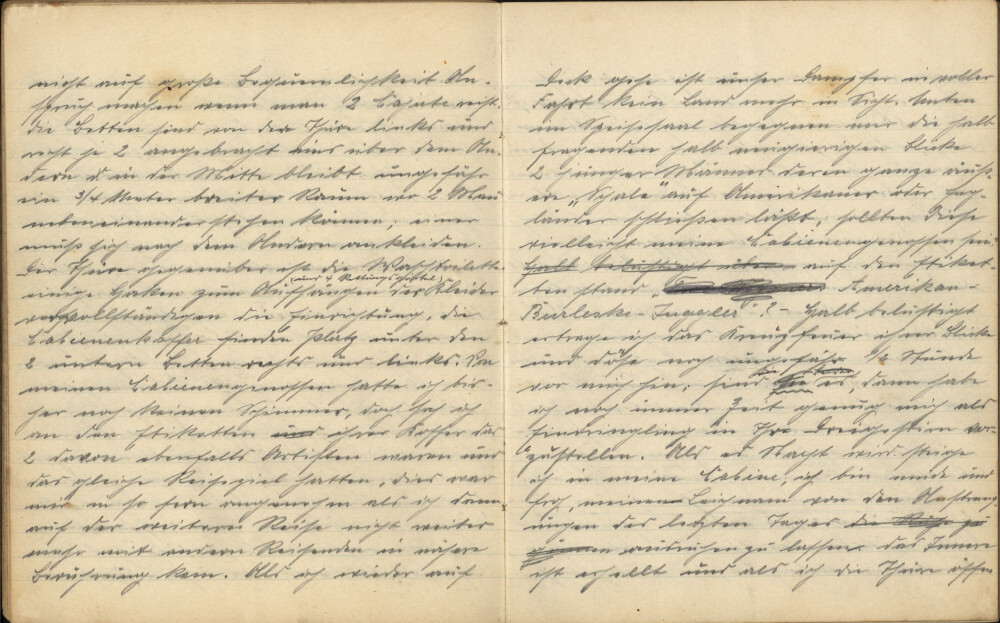 nicht auf große Bequemlichkeit An-
spruch machen wenn man 2 Cajüte reist.
die Betten sind von der Thüre links und
recht je 2 angebracht eins über dem An-
dern u. in der Mitte bleibt ungefähr
ein 3/4 Meter breiter Raum wo 2 Man
nebeneinander stehen können, einer
muß sich nach dem Andern ankleiden.
Der Thüre gegenüber ist die Waschtoilette
(und u. Rettungsgürtel)
einige Haken zum Aufhängen der Kleider
vervollständigen die Einrichtung, die
Cabienenkoffer finden Platz unter den
2 untern Betten rechts und links. Von
meinen Cabienengenossen hatte ich bis-
her noch keinen Schimmer, doch sah ich
an den Etiketten und ihrer Koffer das
2 davon ebenfalls Artisten waren und
das gleiche Reiseziel hatten, dies war
mir in so fern angenehm als ich dann
auf der weiteren Reise nicht weiter
mehr mit andern Reisenden in nähere
Berührung kam. Als ich wieder auf
Deck gehe ist unser Dampfer in voller
Fahrt kein Land mehr in Sicht. Unten
im Speisesaal begegnen mir die halb
fragenden halb neugierigen Blicke
2 junger Männer deren ganze äuß-
ere „Schale" auf Amerikaner oder Eng-
länder schließen läßt, sollten diese
vielleicht meine Cabienengenossen sein.
Halb belustigt über auf den Etiket-
ten stand „ Amerikan-
Burleske-Juggler"? - Halb belustigt
ertrage ich das Kreuzfeuer ihrer Blicke
und döse noch ungefähr 1/2 Stunde
vor mich hin, sind es, dann habe
ich noch immer Zeit genug mich als
Eindringling in Ihre vor-
zustellen. Als es Nacht wird steige
ich in meine Cabine, ich bin müde und
froh, meinen Leichnam von den Anstreng-
ungen des letzten Tages die Ruhe zu
gönnen ausruhen zu lassen. das Innere
ist erhellt und als ich die Thüre öffne